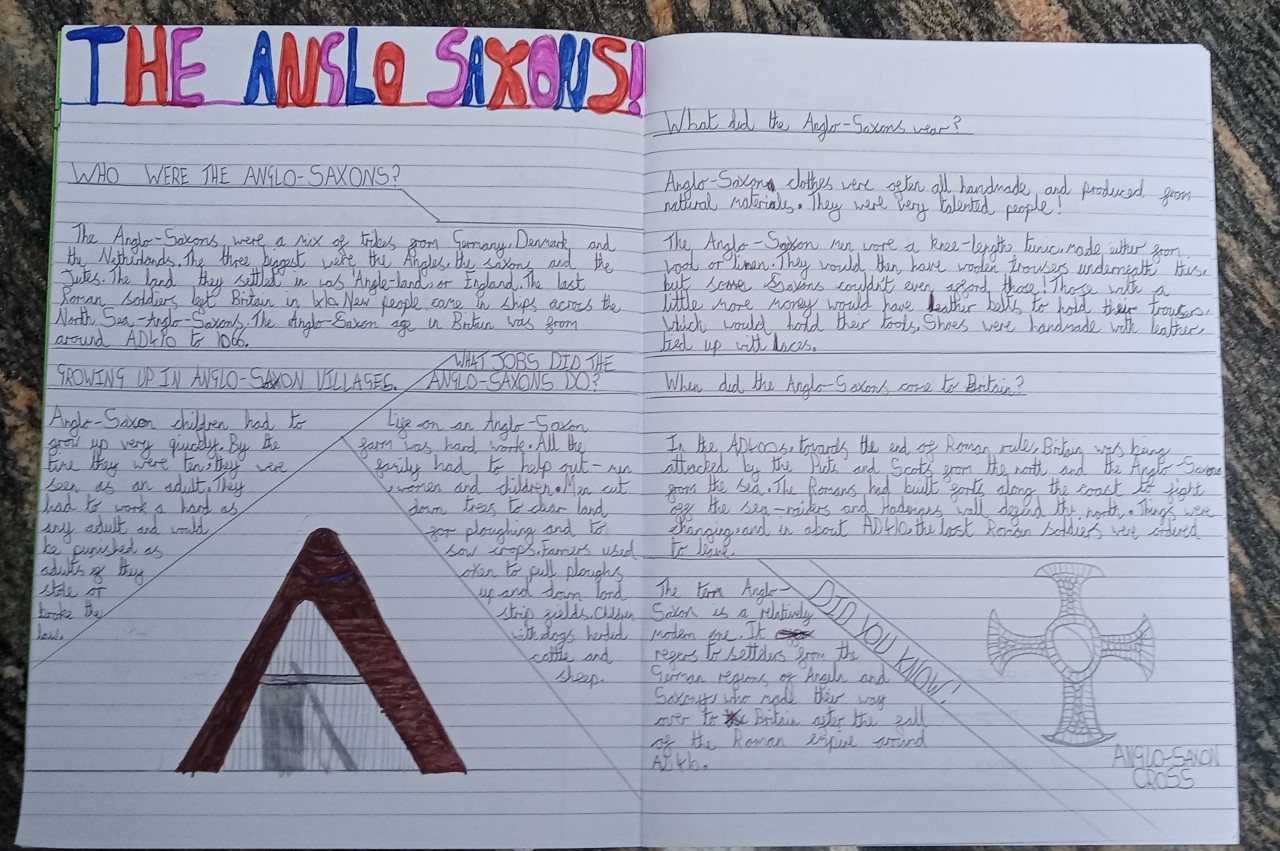 THE ANGLO SAXONS!
WHO WERE THE ANGLO-SAXONS?
The Anglo-Saxons were a mix of tribes from Germany, Denmark and
the Netherlands. The three biggest were the Angles, the saxons and the
Jutes. The land they settled in was 'Angle-land, or England. The last
Roman soldiers left Britain in 410. New people came in ships across the
North Sea-Anglo-Saxons. The Anglo-Saxon age in Britain was from
around AD410 to 1066.
GROWING UP IN ANGLO-SAXON VILLAGES.
Anglo-Saxon children had to
grow up very quickly. By the
time they were ten, they were
seen as an adult. They
had to work a hard as
any adult and would
be punished as
adults if they
stole or
broke the
law.
WHAT JOBS DID THE
ANGLO-SAXONS DO?
Life on an Anglo-Saxon
farm was hard work. All the
family had to help out-men
, women and children. Men cut
down trees to clear land
for ploughing and to
sow crops. Famers used
oxen to pull ploughs
up and down land
strip fields. Children
with dogs herded
cattle and
sheep.
What did the Anglo-Saxons wear?
Anglo-Saxon clothes were often all handmade and produced from
natural materials. They were very talented people!
The Anglo-Saxon men wore a knee-length tunic, made either from
wool or linen. They would then have wollen trousers underneath this,
but some Saxons couldn't even afford those! Those with a
little more money would have leather belts to hold their trousers,
which would hold their tools. Shoes were handmade with leather,
tied up with laces.
When did the Anglo-Saxons come to Britain?
In the AD400s, towards the end of Roman rule, Britain was being
attacked by the Picts and Scots from the north and the Anglo-Saxons
from the sea. The Romans had built forts along the coast to fight
off the sea-raiders and Hadrians wall defend the north. Things were
changing and in about AD410, the last Roman soldiers were ordered
to leave.
The term Anglo-
Saxon is a relatively
modern one. It
refers to settlders from the
German regions of Angeln and
Saxony, who made their way
over to Britain after the fall
of the Roman empire around
AD410.
DID YOU KNOW!
ANGLO-SAXON
CROSS